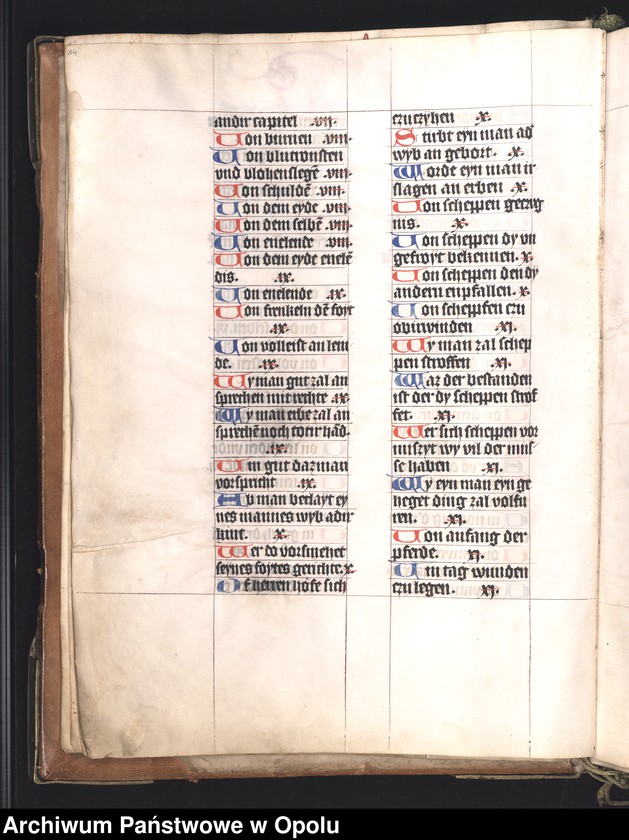 andir capitel .viii.
Von burnen .viii.
Von blutrunsten
vnd blohenslegē .viii.
Von schuldē .viii.
Von dem eyde .viii.
Von dem selbē .viii.
Von enelende .viii.
Von dem eyde enelē
dis. .ix.
Von enelende .ix.
Von frenkeln dē foyt
.ix.
Von volleist an lem
de. .ix.
Wy man gut zal an
sprechen mit rechte .ix.
Wy man erbe zal an
sprechē noch toter hād.
.ix.
Um gut daz man
vorspricht .ix.
Ab man beclayt ey
nes mannes wyb adir
kint. .x.
Wer do vorsmehet
seynes foytes gerichte .x.
Of herren hofe sich
czu czyhen .x.
Stirbt eyn man ad
wyb an gebort. .x.
Worde eyn man ir
slagen an erben .x.
Von scheppen gecug
nis. .x.
Von scheppen dy vn
gefroyt bekennen .x.
Von scheppen den dy
andern enpfallen. .x.
Von schepfen czu
obirwinden .xi.
Wy man zal schep
pen stroffen .xi.
Waz der bestanden
ist der dy scheppen strof
fet. .xi.
Wer sich scheppen vor
miszt wy vil der mus
se haben .xi.
Wy eyn man eyn ge
heget ding zal volfu
ren. .xi.
Von anfang der
pferde. .xi.
Um tag wunden
czu legen. .xi.
Archiwum Państwowe w Opolu